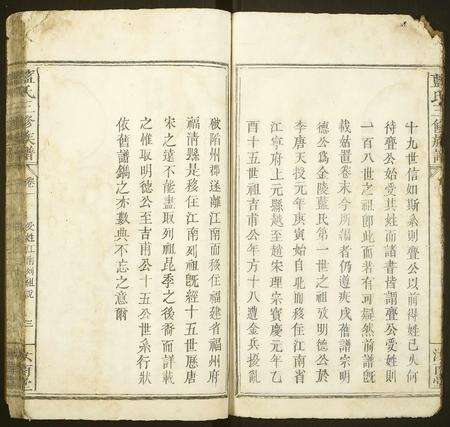 十九世信如斯系則夔公以前得姓已失何
待夔公始受其姓而譜書皆謂夔公受姓則
一百八世之祖即此而著有可疑然前譜既
載姑置卷末今所編者仍遵庚戌舊譜宗明
德公為金陵藍氏第一世之祖攷明德公於
李唐天授元年庚寅始自此而移住江南省
江寧府上元縣越至趙宋理宗寶慶元年乙
酉十五世祖吉甫公年方十八遭金兵擾亂
破陷州郡遂離江南而移住福建省福州府
福清縣是移住江南列祖既經十五世歷唐
宋之遠不能盡取列祖昆季之後裔而詳載
之惟取明德公至吉甫公十五公世系行狀
依舊譜錄之亦數典不忘之意爾
藍氏三修族譜
卷
受姓江南列祖說
三
汝南堂